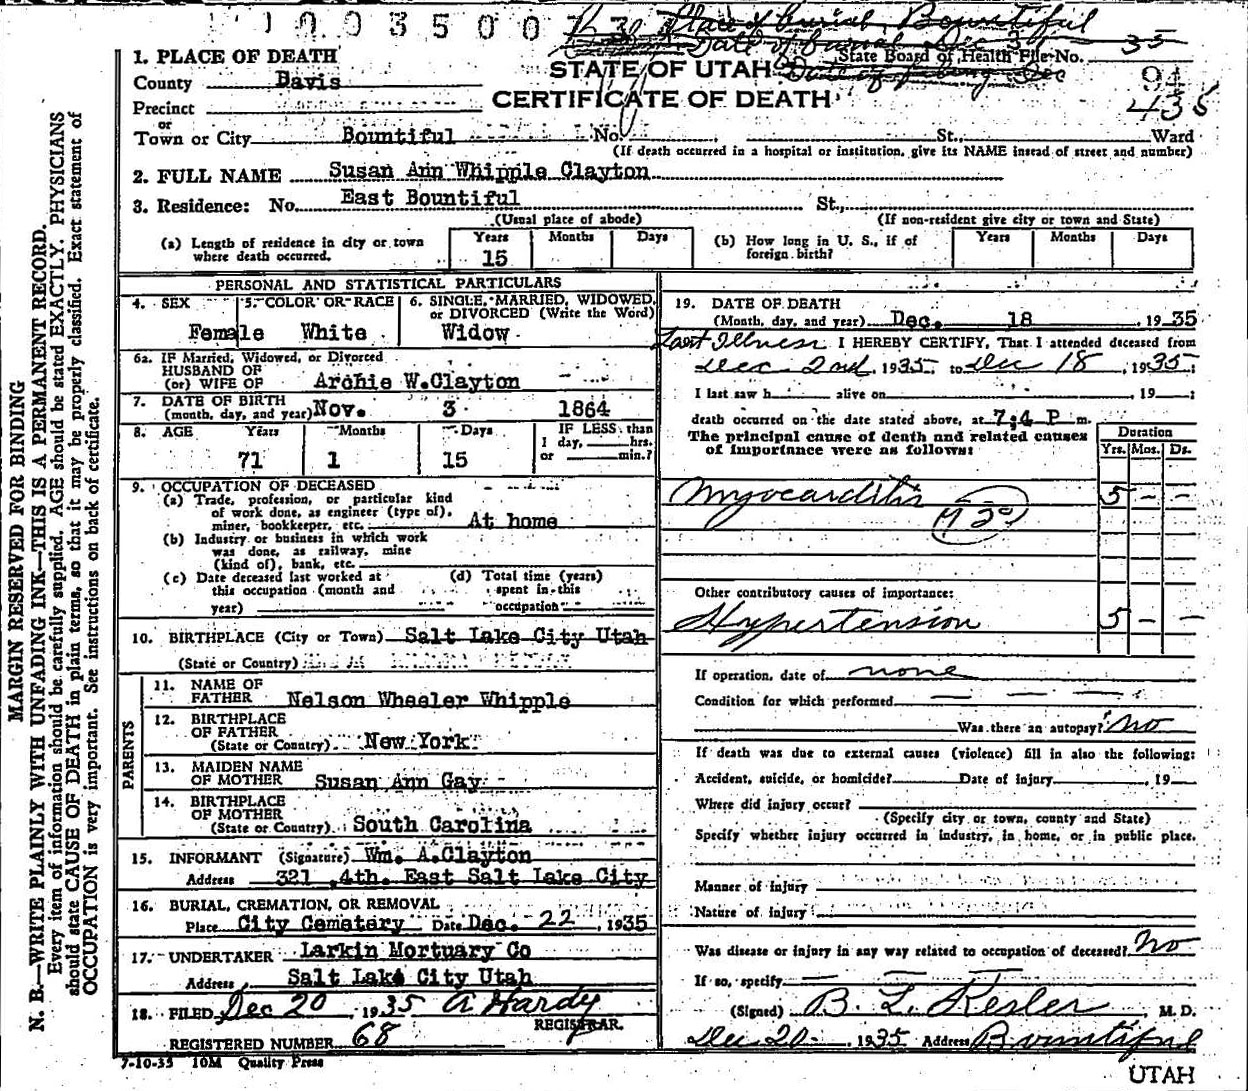 1 0 0 3 5 0 0 7 3
Place of Burial, Bountiful
Date of burial Dec
State Board of Health File No. 35
94
435
1. PLACE OF DEATH
STATE OF UTAH
County Davis
CERTIFICATE OF DEATH
Precinct
or
Town or City Bountiful No. St., Ward
(If death occurred in a hospital or institution, give its NAME instead of street and number)
2. FULL NAME Susan Ann Whipple Clayton
3. Residence: No. East Bountiful St.,
(Usual place of abode) (If non-resident give city or town and State)
(a) Length of residence in city or town where death occurred. Years 15 Months Days
(b) How long in U. S., if of foreign birth? Years Months Days
PERSONAL AND STATISTICAL PARTICULARS
4. SEX Female
5. COLOR OR RACE White
6. SINGLE, MARRIED, WIDOWED, or DIVORCED (Write the Word) Widow
6a. IF Married, Widowed, or Divorced
HUSBAND OF
(or) WIFE OF Archie W.Clayton
7. DATE OF BIRTH
(month, day, and year) Nov. 3 1864
8. AGE Years 71 Months 1 Days 15
IF LESS than
1 day, hrs.
or min.?
9. OCCUPATION OF DECEASED
(a) Trade, profession, or particular kind
of work done, as engineer (type of),
miner, bookkeeper, etc. At home
(b) Industry or business in which work
was done, as railway, mine
(kind of), bank, etc.
(c) Date deceased last worked at
this occupation (month and
year)
(d) Total time (years)
spent in this
occupation
10. BIRTHPLACE (City or Town) Salt Lake City Utah
(State or Country)
PARENTS
11. NAME OF
FATHER Nelson Wheeler Whipple
12. BIRTHPLACE
OF FATHER
(State or Country) New York
13. MAIDEN NAME
OF MOTHER Susan Ann Gay
14. BIRTHPLACE
OF MOTHER
(State or Country) South Carolina
15. INFORMANT (Signature) Wm. A.Clayton
Address 321 .4th. East Salt Lake City
16. BURIAL, CREMATION, OR REMOVAL
Place City Cemetery Date Dec. 22, 1935
17. UNDERTAKER Larkin Mortuary Co
Address Salt Lake City Utah
18. FILED Dec 20, 1935 A Hardy
REGISTRAR.
REGISTERED NUMBER 68
7-10-35 10M Quality Press
19. DATE OF DEATH
(Month, day, and year) Dec. 18, 1935
Last Illness I HEREBY CERTIFY, That I attended deceased from
Dec 2nd, 1935 to Dec 18, 1935;
I last saw h alive on , 19 ;
death occurred on the date stated above, at 7;4 P m.
The principal cause of death and related causes
of importance were as follows:
Duration
Yrs. Mos. Ds.
Myocarditis 5 - -
Other contributory causes of importance:
Hypertension 5 - -
If operation, date of none
Condition for which performed
Was there an autopsy? no
If death was due to external causes (violence) fill in also the following:
Accident, suicide, or homicide? Date of injury , 19
Where did injury occur?
(Specify city or town, county and State)
Specify whether injury occurred in industry, in home, or in public place.
Manner of injury
Nature of injury
Was disease or injury in any way related to occupation of deceased? No
If so, specify
(Signed) B. L. Kesler M. D.
Dec 20, 1935 Address Bountiful
UTAH
MARGIN RESERVED FOR BINDING
N. B.—WRITE PLAINLY WITH UNFADING INK—THIS IS A PERMANENT RECORD.
Every item of information should be carefully supplied. AGE should be stated EXACTLY. PHYSICIANS
should state CAUSE OF DEATH in plain terms, so that it may be properly classified. Exact statement of
OCCUPATION is very important. See instructions on back of certificate.